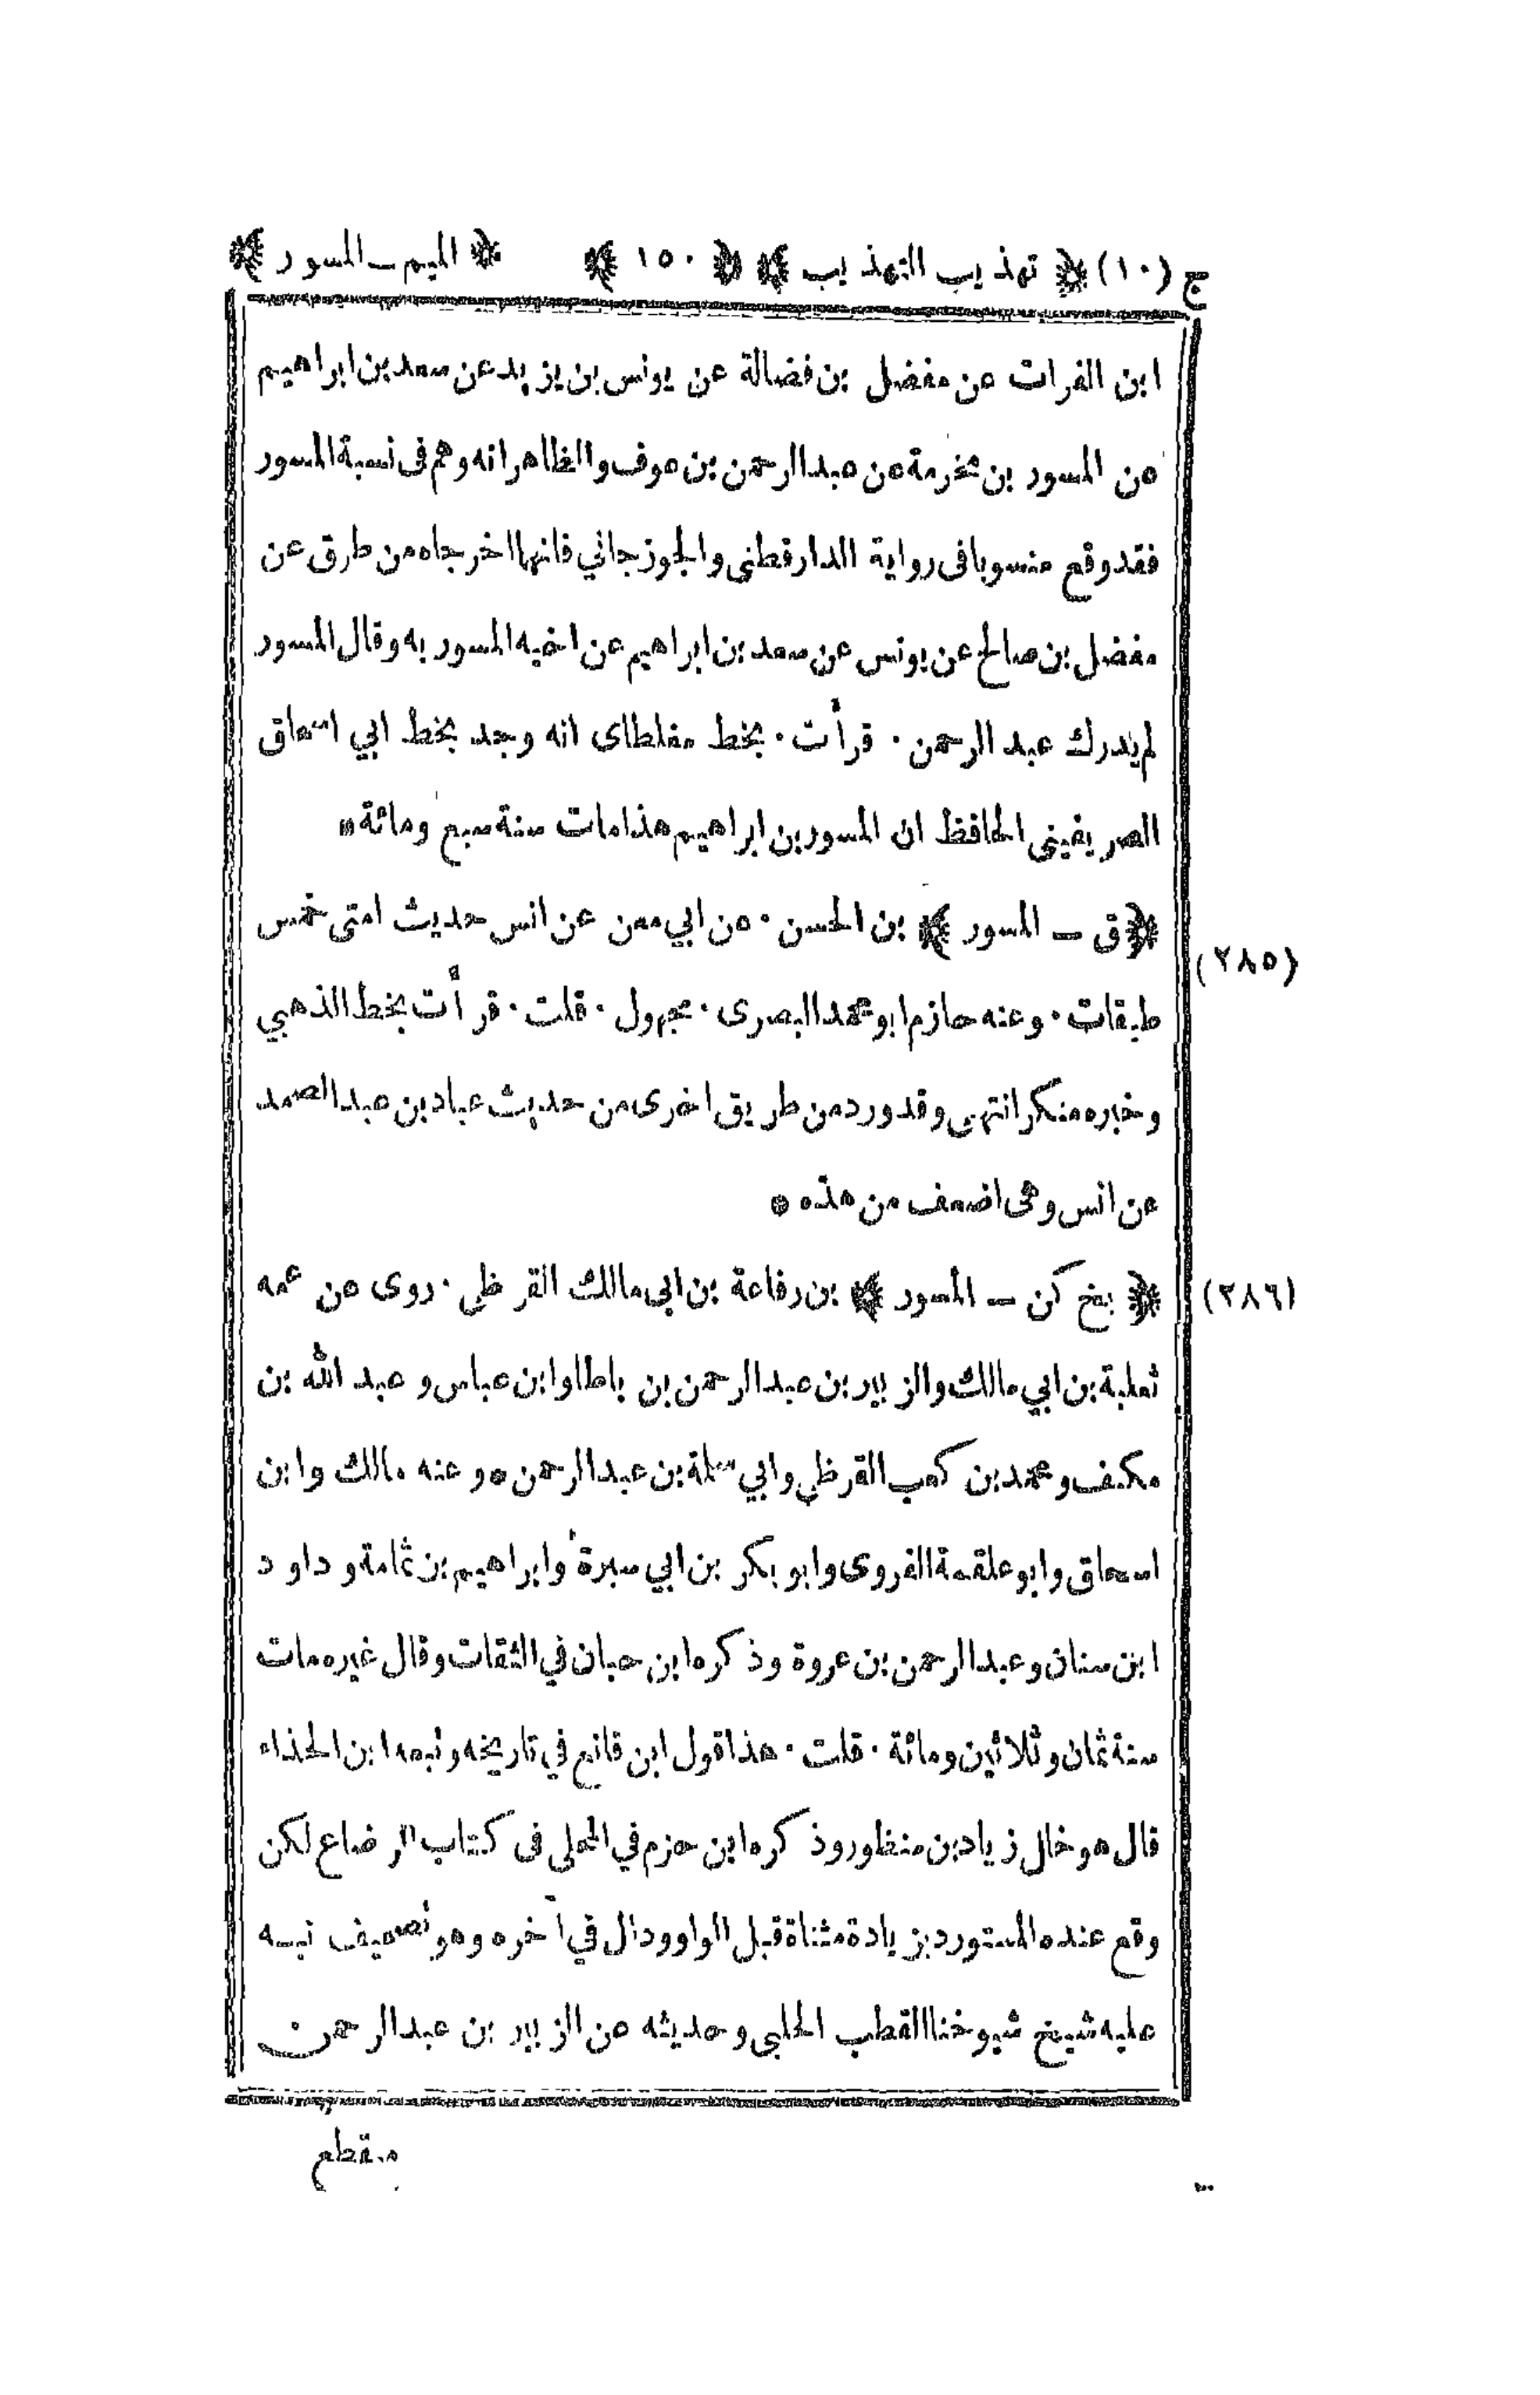 ج (١٠) ﴿ تهذيب التهذيب ﴾ ﴿ ١٥٠ ﴾ ﴿ الميم ـ المسور ﴾
ابن الفرات عن مفضل بن فضالة عن يونس بن يزيد عن سعد بن ابراهيم
عن المسور بن مخرمة عن عبد الرحمن بن عوف والظاهر انه وهم فى نسبة المسور
فقد وقع منسوبا فى رواية الدارقطنى والجوزجاني فانهما اخرجاه من طرق عن
مفضل بن صالح عن يونس عن سعد بن ابراهيم عن اخيه المسور به وقال المسور
لم يدرك عبد الرحمن · قرأت · بخط مغلطاى انه وجد بخط ابي اسحاق
الصريفينى الحافظ ان المسور بن ابراهيم هذا مات سنة سبع ومائة *
﴿ ق ـ المسور ﴾ بن الحسن · عن ابي معن عن انس حديث امتى خمس
(٢٨٥)
طبقات · وعنه حازم ابو محمد البصرى · مجهول · قلت · قرأت بخط الذهبي
وخبره منكر انتهى وقد ورد من طريق اخرى من حديث عباد بن عبد الصمد
عن انس وهى اضعف من هذه *
﴿ بخ كن ـ المسور ﴾ بن رفاعة بن ابى مالك القرظي · روى عن عمه
(٢٨٦)
ثعلبة بن ابي مالك والزبير بن عبد الرحمن بن باطا وابن عباس وعبد الله بن
مكنف ومحمد بن كعب القرظي وابي سلمة بن عبد الرحمن ٥ وعنه مالك وابن
اسحاق وابو علقمة الفروى وابو بكر بن ابي سبرة وابراهيم بن ثمامة وداود
ابن سنان وعبد الرحمن بن عروة وذكره ابن حبان في الثقات وقال غيره مات
سنة ثمان وثلاثين ومائة · قلت · هذا قول ابن قانع في تاريخه وتبعه ابن الحذاء
قال هو خال زياد بن منظور وذكره ابن حزم في المحلى فى كتاب الرضاع لكن
وقع عنده المستورد بزيادة مثناة قبل الواو ودال في آخره وهو تصحيف نبه
عليه شيخ شيوخنا القطب الحلبي وحديثه عن الزبير بن عبد الرحمن
منقطع